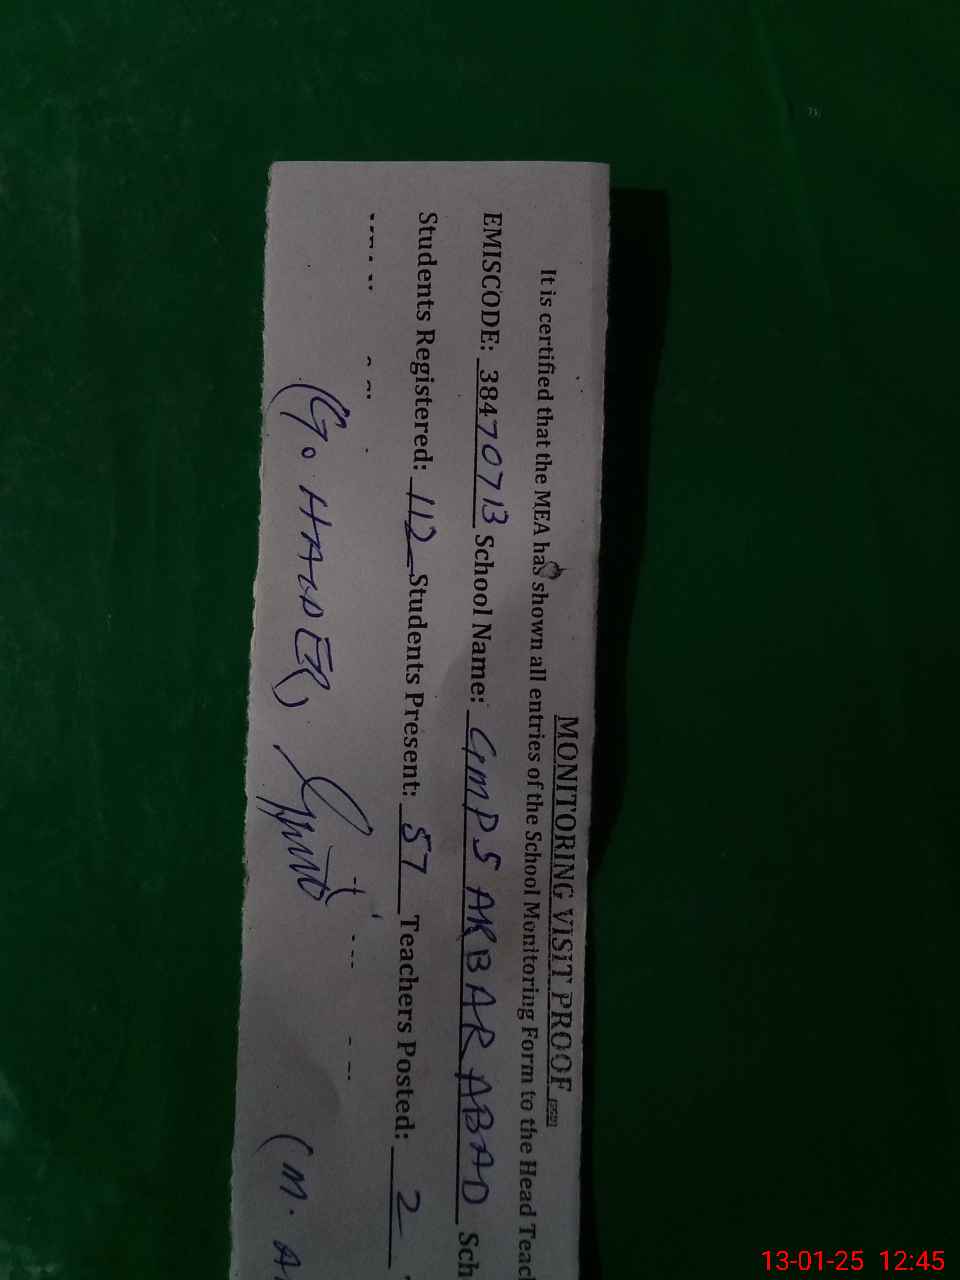 MONITORING VISIT PROOF
It is certified that the MEA has shown all entries of the School Monitoring Form to the Head Teac
EMISCODE: 38470713 School Name: GMPS AKBAR ABAD Sch
Students Registered: 112 Students Present: 57 Teachers Posted: 2
(G. HAIDER) (M. A
13-01-25 12:45